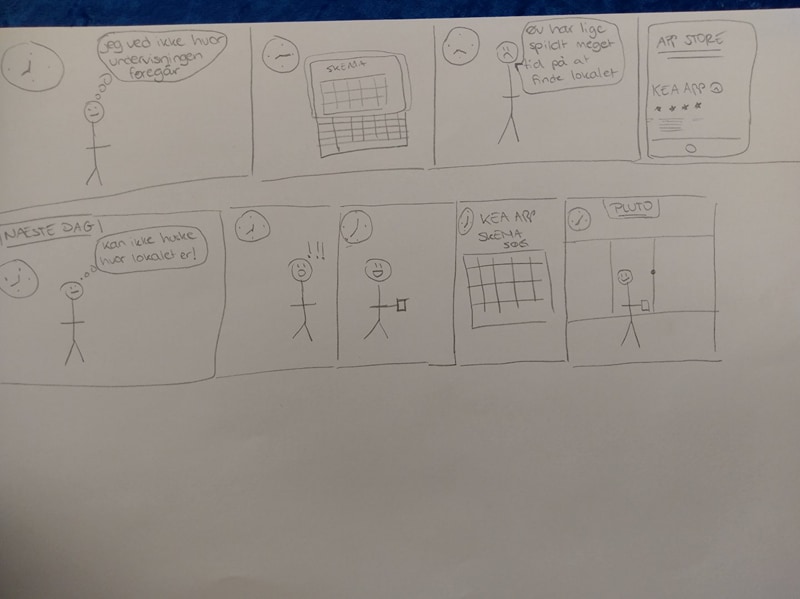 jeg ved ikke hvor
undervisningen
foregår
SKEMA
Øv har lige
spildt meget
tid på at
finde lokalet
APP STORE
KEA APP
NÆSTE DAG
kan ikke huske
hvor lokalet er!
!!!
KEA APP
SKEMA
SØG
PLUTO